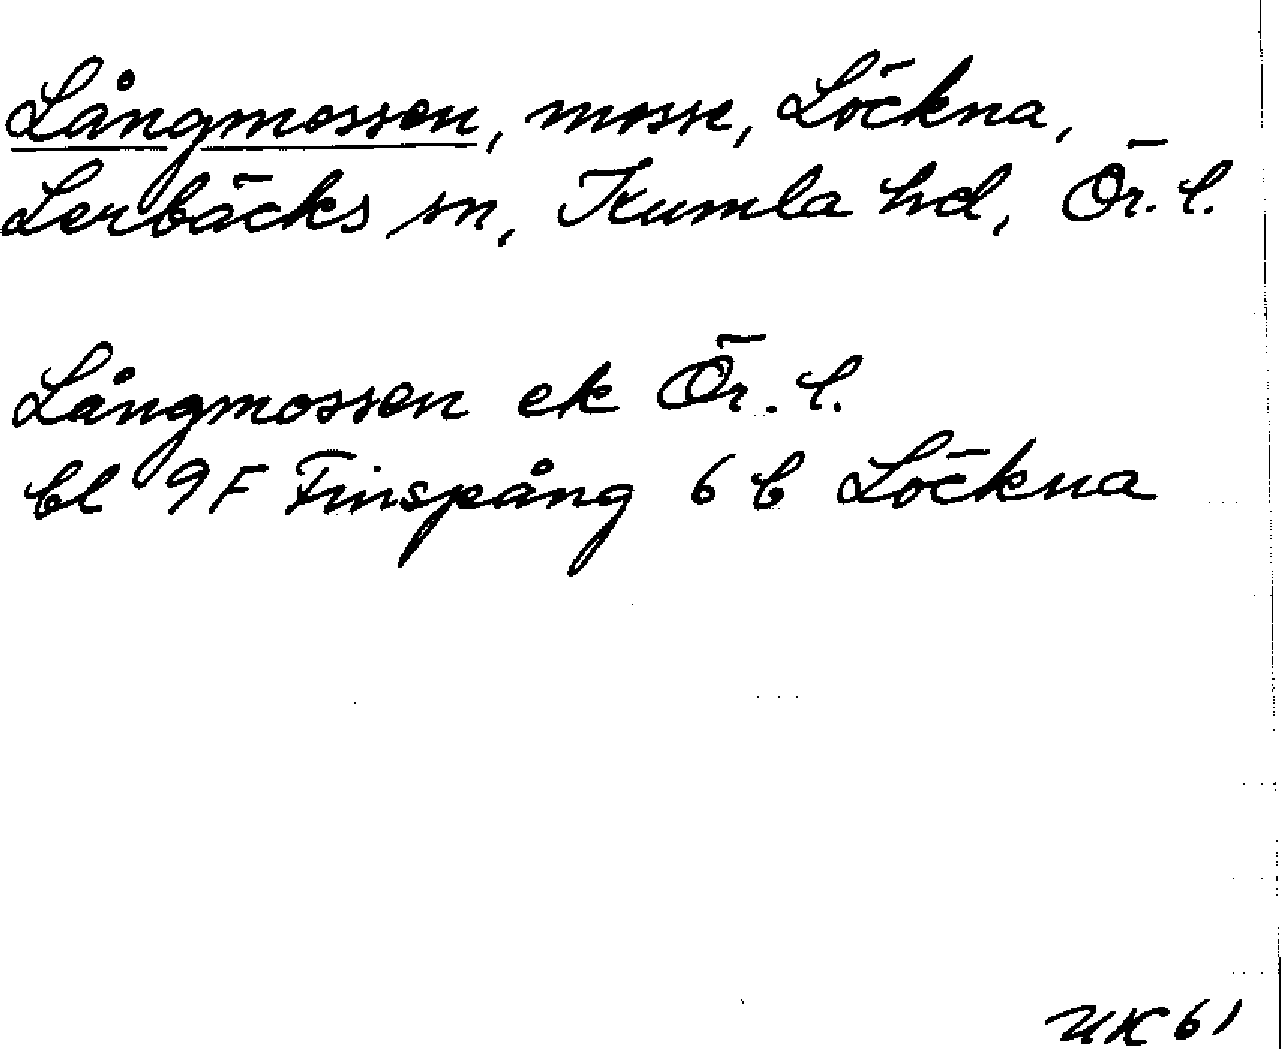 Långmossen, mosse, Löckna,
Lerbäcks sn, Kumla hd, Ör. l.
Långmossen ek Ör. l.
bl 9F Finspång 6 b Löckna
UK 61